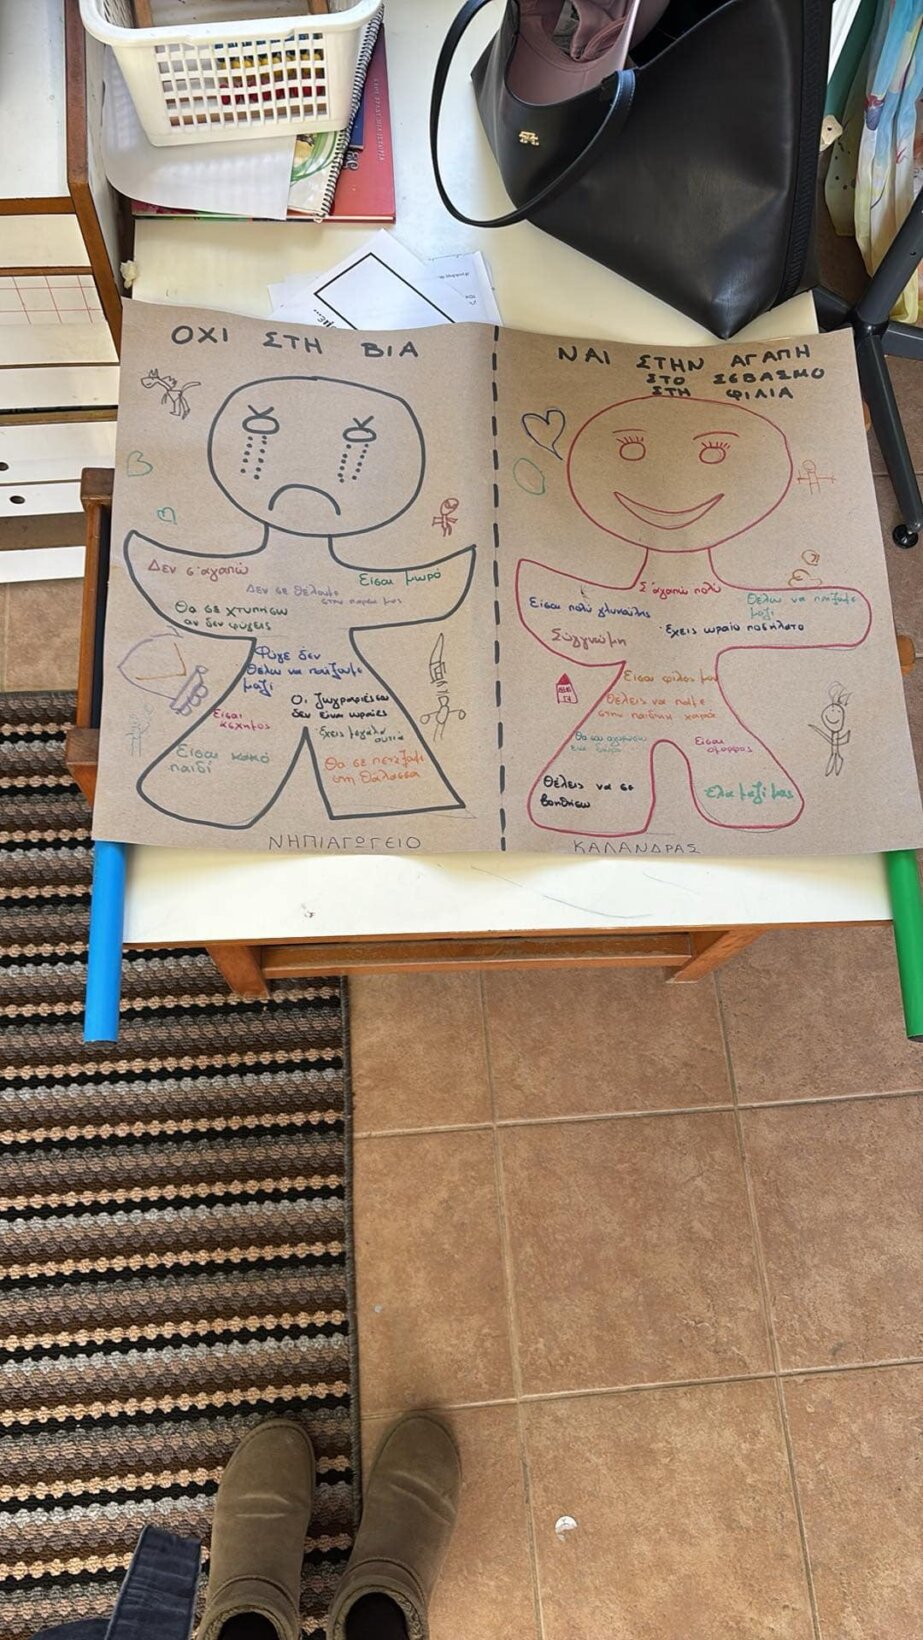 ΟΧΙ ΣΤΗ ΒΙΑ
Δεν σ'αγαπώ
Δεν σε θέλουμε
στην παρέα μας
Είσαι μωρό
Θα σε χτυπήσω
αν δεν φύγεις
Φύγε δεν
θέλω να παίζουμε
μαζί
Οι ζωγραφιές σου
δεν είναι ωραίες
Είσαι
άσχημος
Έχεις μεγάλα
αυτιά
Είσαι κακό
παιδί
Θα σε πετάξουμε
στη θάλασσα
ΝΗΠΙΑΓΩΓΕΙΟ
ΝΑΙ ΣΤΗΝ ΑΓΑΠΗ
ΣΤΟ ΣΕΒΑΣΜΟ
ΣΤΗ ΦΙΛΙΑ
Σ'αγαπώ πολύ
Είσαι πολύ γλυκούλης
Θέλω να παίξουμε
μαζί
Έχεις ωραίο ποδήλατο
Συγγνώμη
Είσαι φίλος μου
Θέλεις να πάμε
στην παιδική χαρά
Θα σου αγοράσω
ένα δώρο
Είσαι
όμορφος
Θέλεις να σε
βοηθήσω
Έλα μαζί μας
ΚΑΛΑΝΔΡΑΣ